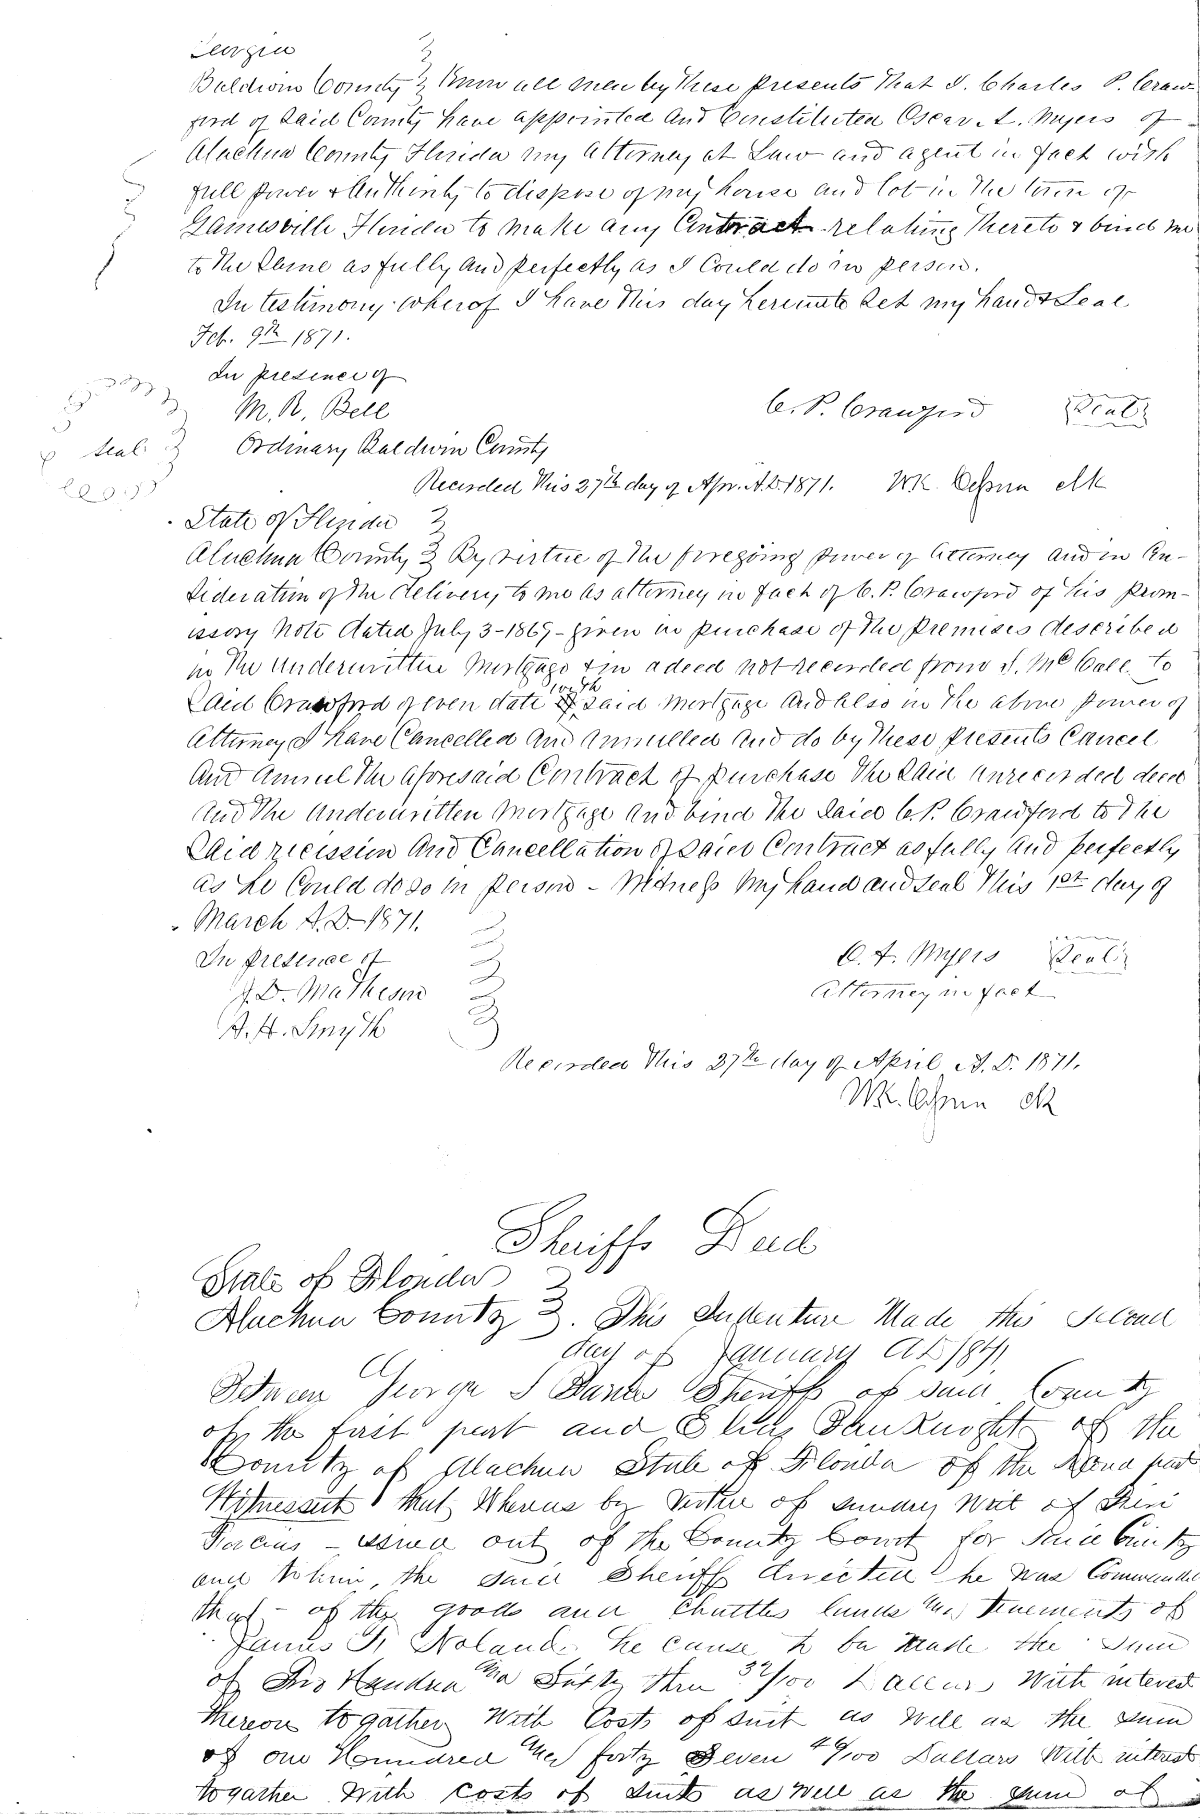 Georgia
Baldwin County } Know all men by these presents that I. Charles P. Craw-
ford of Said County have appointed and Constituted Oscar A. Myers of
Alachua County Florida my Attorney at Law and agent in fact with
full power & Authority to dispose of my house and lot in the town of
Gainesville Florida to make any Contract relating thereto & bind me
to the Same as fully and perfectly as I Could do in person.
In testimony wherof I have this day hereunto Set my hand & Seal
Feb. 9th 1871.
In presence of
M. R. Bell
C. P. Crawford Seal
Seal
Ordinary Baldwin County
Recorded this 27th day of Apr. A.D. 1871. Wk Cessna clk
State of Florida }
Alachua County } By virtue of the foregoing power of Attorney and in Con-
sideration of the delivery to me as attorney in fact of C. P. Crawford of his prom-
issory note dated July 3 - 1869 - given in purchase of the premises described
in the underwritten Mortgage & in a deed not recorded from S. McCall to
Said Crawford of even date with said mortgage and also in the above power of
Attorney I have Cancelled and annulled and do by these presents Cancel
and annul the aforesaid Contract of purchase the Said unrecorded deed
and the underwritten Mortgage and bind the Said C. P. Crawford to the
Said recission and Cancellation of Said Contract as fully and perfectly
as he Could do so in person - Witness my hand and seal this 1st day of
March A.D. 1871.
In presence of
O. A. Myers Seal
J. D. Matheson
Attorney in fact
A. H. Smyth
Recorded this 27th day of April A.D. 1871.
Wk. Cessna clk
Sheriffs Deed
State of Florida }
Alachua County } . This Indenture Made this Second
day of January AD 1841
Between George S Sheriff of said County
of the first part and Elias Knight of the
County of Alachua State of Florida of the Second part
Witnesseth that, Whereas by virtue of sundry Writ of Fieri
Facias - issued out of the County Court for said County
and to him, the said Sheriff directed he was Commanded
that - of the goods and Chattles lands and tenements of
James T. Noland he cause to be made the sum
of Two Hundred and Sixty three 32/100 Dollars With interest
thereon togather With Costs of suit as well as the sum
of one Hundred and forty Seven 49/100 Dollars With interest
togather With costs of suits as well as the sum of